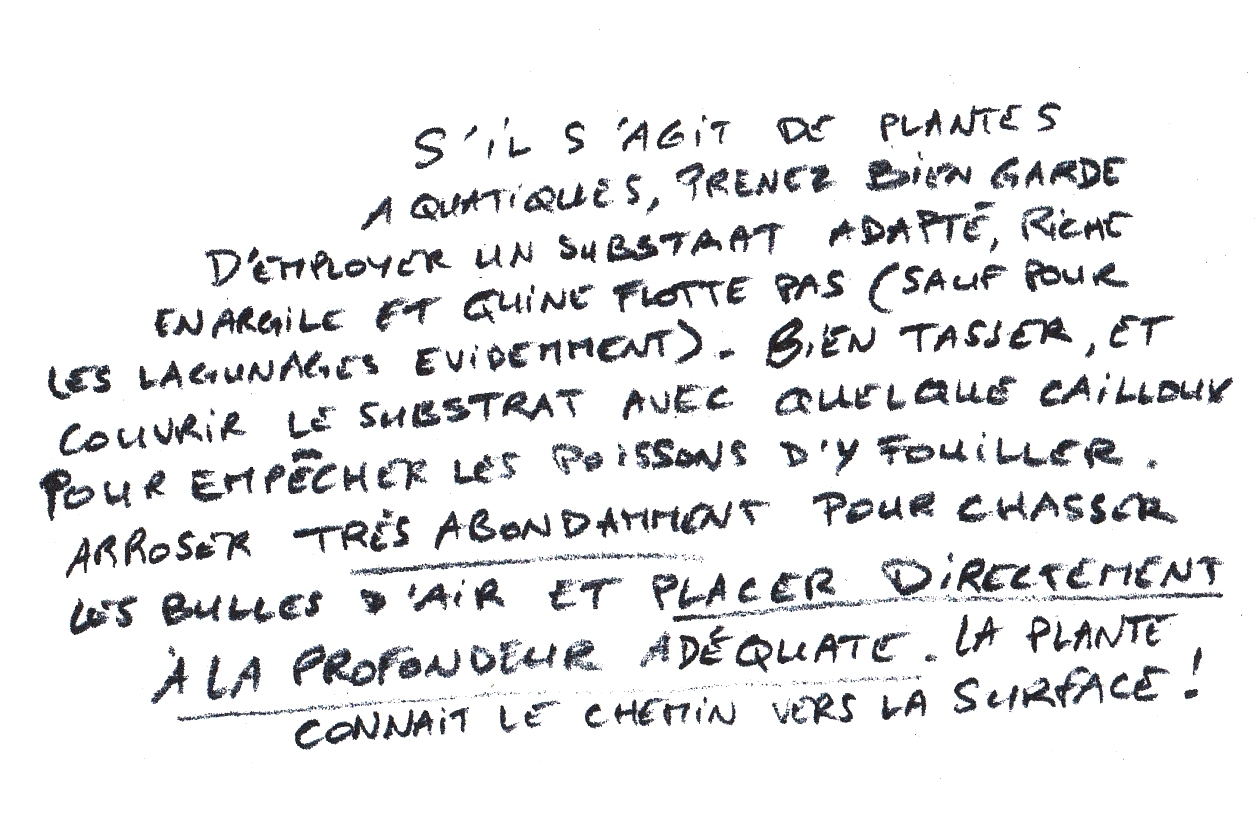 S'IL S'AGIT DE PLANTES
AQUATIQUES, PRENEZ BIEN GARDE
D'EMPLOYER UN SUBSTRAAT ADAPTÉ, RICHE
EN ARGILE ET QUI NE FLOTTE PAS (SAUF POUR
LES LAGUNAGES EVIDEMMENT). BIEN TASSER, ET
COUVRIR LE SUBSTRAT AVEC QUELQUE CAILLOUX
POUR EMPÊCHER LES POISSONS D'Y FOUILLER.
ARROSER TRÈS ABONDAMMENT POUR CHASSER
LES BULLES D'AIR ET PLACER DIRECTEMENT
À LA PROFONDEUR ADÉQUATE. LA PLANTE
CONNAIT LE CHEMIN VERS LA SURFACE!